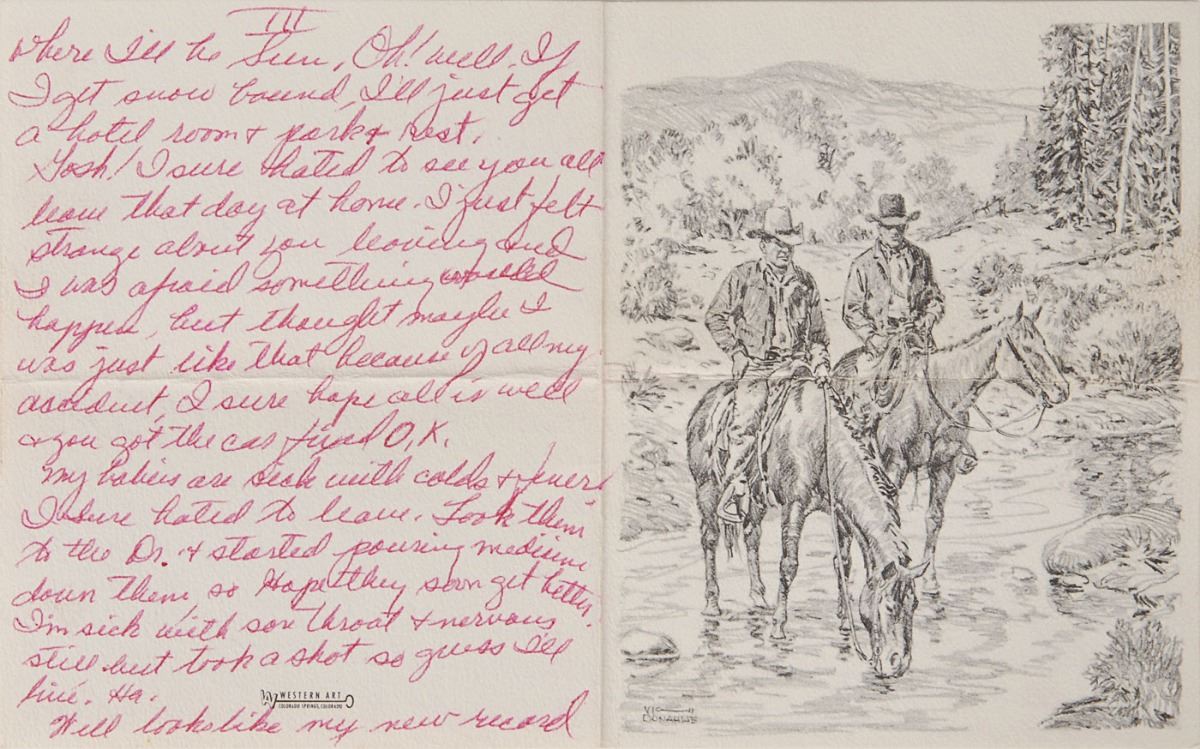 III
where I'll be Sun, Oh! well. If
I get snow bound, I'll just get
a hotel room & park & rest.
Gosh! I sure hated to see you all
leave that day at home. I just felt
strange about you leaving and
I was afraid something would
happen, but thought maybe I
was just like that because of all my
accident, I sure hope all is well
& you got the car fixed O.K.
My babies are sick with colds & fevers
I sure hated to leave. Took them
to the Dr. & started pouring medicine
down them so Hope they soon get better.
I'm sick with sore throat & nervous
still but took a shot so guess I'll
live. Ha.
WESTERN ART
COLORADO SPRINGS, COLORADO
Well looks like my new record
VIC DONAHUE